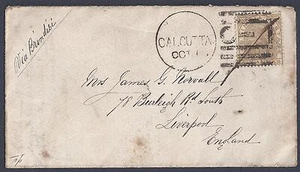 Via Brindisi
CALCUTTA
OCT
Mrs James G. Norvall
78 Burleigh Rd South
Liverpool
England